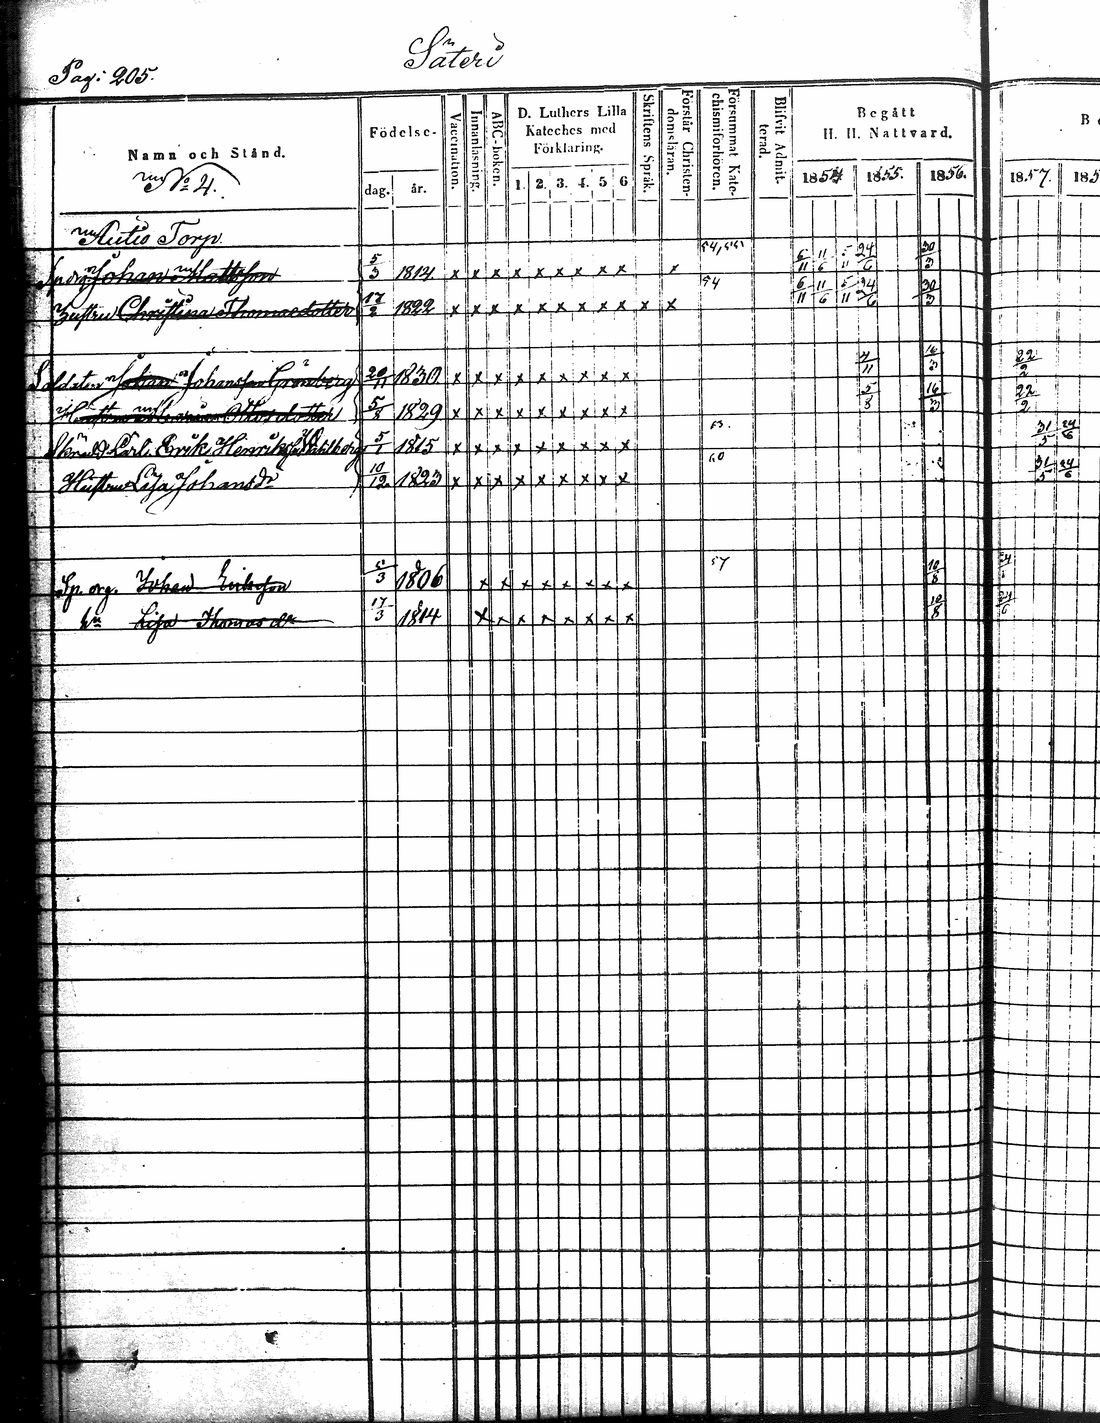 Säteri
Pag: 205.
Namn och Stånd.
Födelse-
dag. år.
Vaccination.
Innanläsning.
ABC-boken.
D. Luthers Lilla
Kateches med
Förklaring.
1. 2. 3. 4. 5 6
Skriftens Språk.
Förstår Christen-
domsläran.
Försummat Kate-
chismiförhören.
Blifvit Admit-
terad.
Begått
H. H. Nattvard.
1854 1855. 1856.
1857. 185
No 4.
Autio Torp.
Johan Mattsson 5/3 1814 x x x x x x x x x x 54, 55 6/11 11/6 5/11 24/6 30/3
Hustru Christina Thomasdotter 17/2 1822 x x x x x x x x x x x 54 6/11 11/6 5/11 24/6 30/3
Soldaten Johan Johansson Grönberg 20/11 1830 x x x x x x x x x 4/11 16/3 22/2
Hustru 5/8 1829 x x x x x x x x x 5/8 16/3 22/2
Carl Erik Henriksson 5/1 1815 x x x x x x x x x 63. 31/5 24/6
Hustru Lisa Johansdr 10/12 1823 x x x x x x x x x 60 31/5 24/6
Sp. org. Johan Eriksson 5/3 1806 x x x x x x x x 57 10/8
hu Lisa Thomasdr 17/3 1814 x x x x x x x x 10/8 24/6